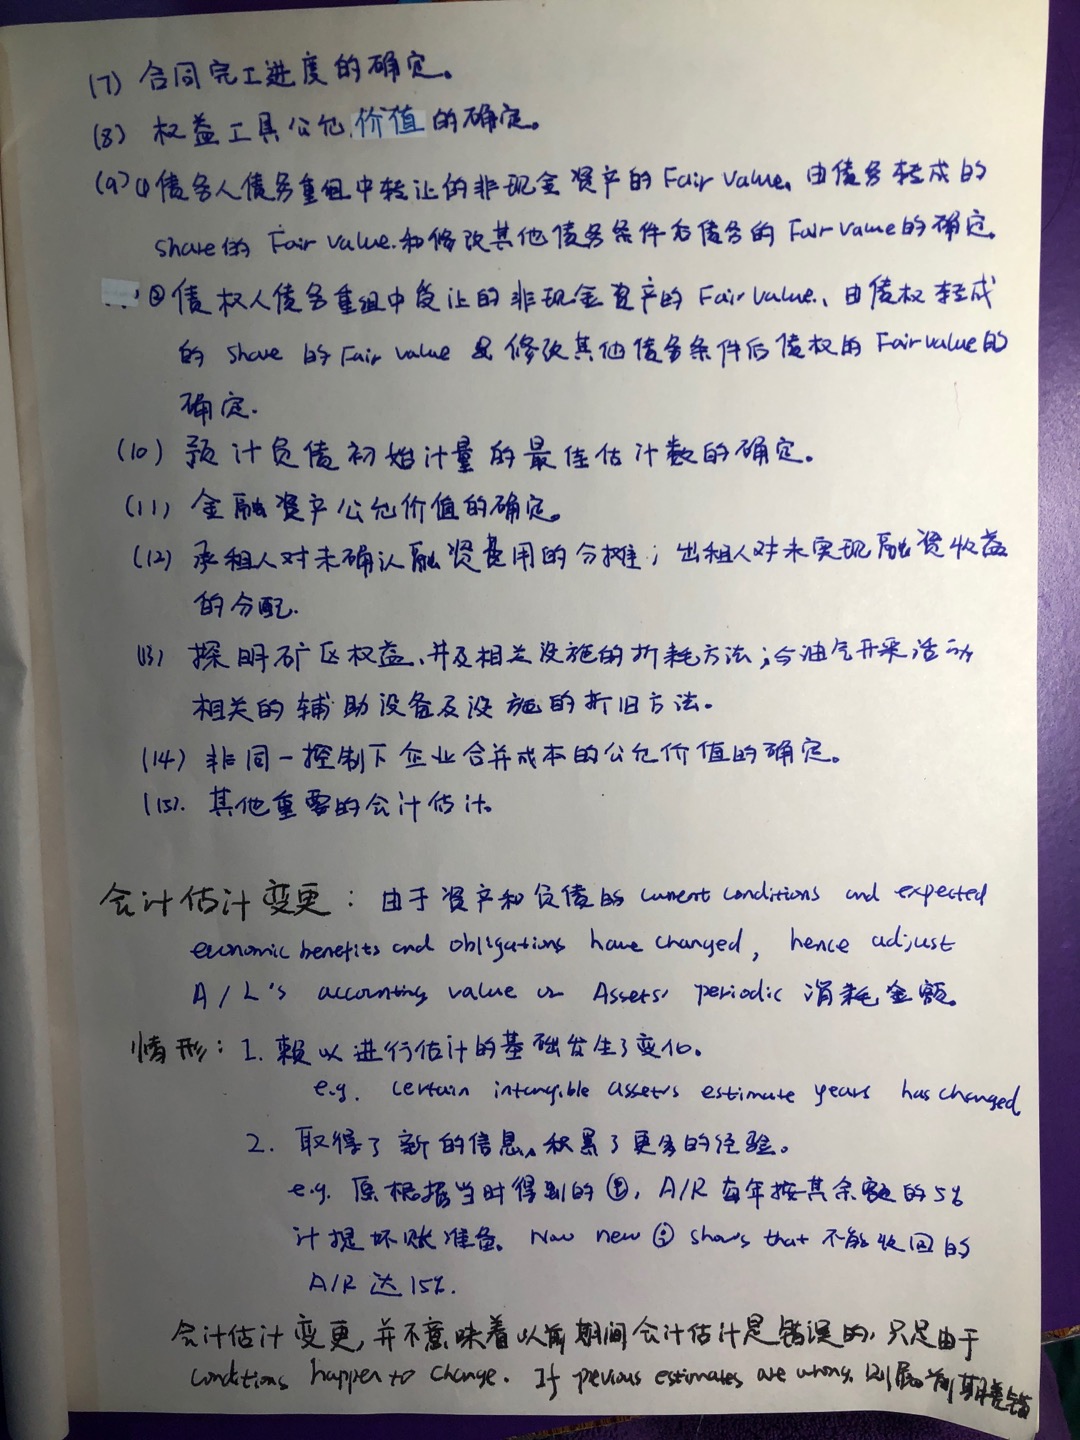 (7) 合同完工进度的确定。
(8) 权益工具公允价值的确定。
(9) ① 债务人债务重组中转让的非现金资产的Fair Value、由债务转成的
share的 Fair value.和修改其他债务条件后债务的 Fair value的确定。
② 债权人债务重组中受让的非现金资产的 Fair value、由债权转成
的 share 的 Fair value 及修改其他债务条件后债权的 Fair value的
确定.
(10) 预计负债初始计量的最佳估计数的确定。
(11) 金融资产公允价值的确定。
(12) 承租人对未确认融资费用的分摊；出租人对未实现融资收益
的分配.
(13) 探明矿区权益、井及相关设施的折耗方法；与油气开采活动
相关的辅助设备及设施的折旧方法。
(14) 非同一控制下企业合并成本的公允价值的确定。
(15). 其他重要的会计估计。
会计估计变更：由于资产和负债的 current conditions and expected
economic benefits and obligations have changed, hence adjust
A/L's accounting value or Assets' periodic 消耗金额。
情形：1. 赖以进行估计的基础发生了变化。
e.g. certain intangible assets's estimate years has changed
2. 取得了新的信息、积累了更多的经验。
e.g. 原根据当时得到的ⓘ, A/R 每年按其余额的5%
计提坏账准备. Now new ⓘ shows that 不能收回的
A/R 达 15%.
会计估计变更,并不意味着以前期间会计估计是错误的,只是由于
conditions happen to change. If previous estimates are wrong, 则属前期差错